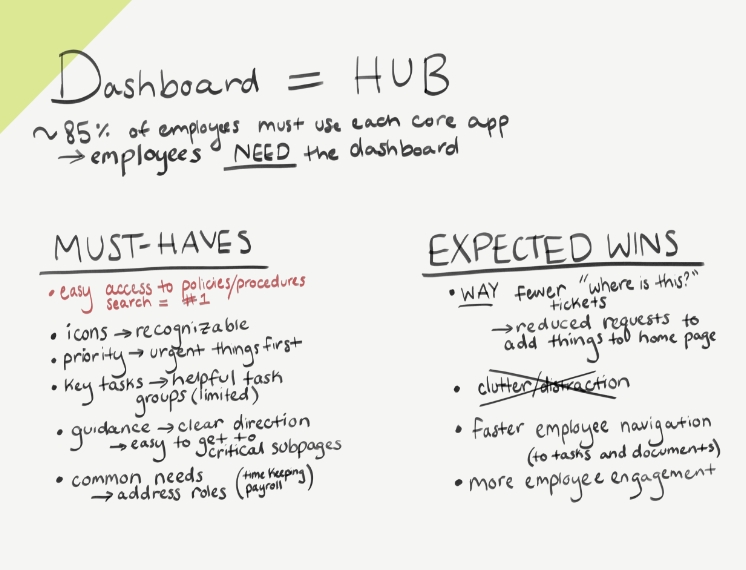 Dashboard = HUB
~85% of employees must use each core app
→ employees NEED the dashboard
MUST-HAVES
• easy access to policies/procedures
search = #1
• icons → recognizable
• priority → urgent things first
• key tasks → helpful task
groups (limited)
• guidance → clear direction
→ easy to get to
critical subpages
• common needs
→ address roles (time keeping
payroll)
EXPECTED WINS
• WAY fewer "where is this?"
tickets
→ reduced requests to
add things to home page
• clutter/distraction
• faster employee navigation
(to tasks and documents)
• more employee engagement